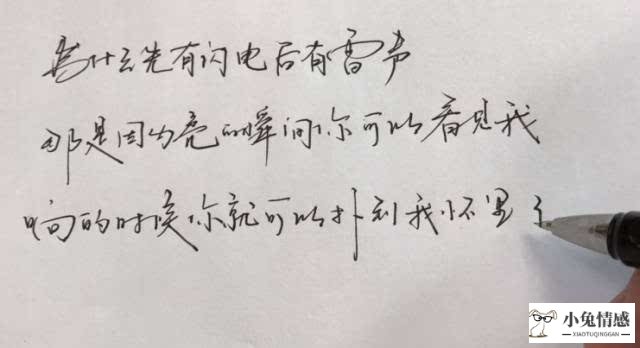 为什么先有闪电后有雷声
那是因为亮的瞬间你可以看见我
响的时候你就可以扑到我怀里了
小兔情感
XIAOTUQINGGAN